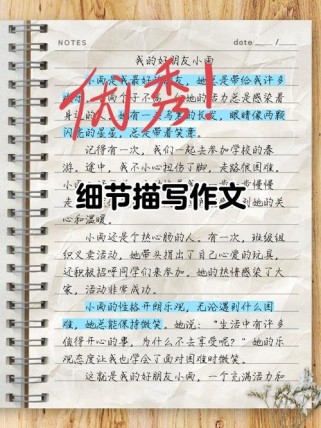 NOTES
date / /
我的好朋友小画
小画是我最好 友，她总是带给我许多
个子不高 她的活力总是感染着
身 她有一 的长发，眼睛像两颗
闪亮的星星，总是带着笑意。
优秀！
记得有一次，我们一起去参加学校的春
游。途中，我不小心扭伤了脚，走路很困难。
小 步步慢慢
走 到她的关
心和温暖。
细节描写作文
小画还是个热心肠的人。有一次，班级组
织义卖活动，她带头捐出了自己心爱的玩具，
还积极招呼同学们来参加。她的热情感染了大
家，活动非常成功。
小画的性格开朗乐观，无论遇到什么困
难，她总能保持微笑。她说：“生活中有许多
值得开心的事，为什么不去享受呢？”她的乐
观态度让我也学会了面对困难时微笑。
这就是我的好朋友小画，一个充满活力和